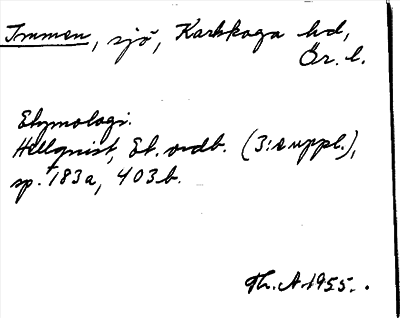 Immen, sjö, Karlskoga hd,
Ör. l.
Etymologi.
Hellquist, Et. ordb. (3:e uppl.),
sp. 183a, 403b.
Th. A. 1955.